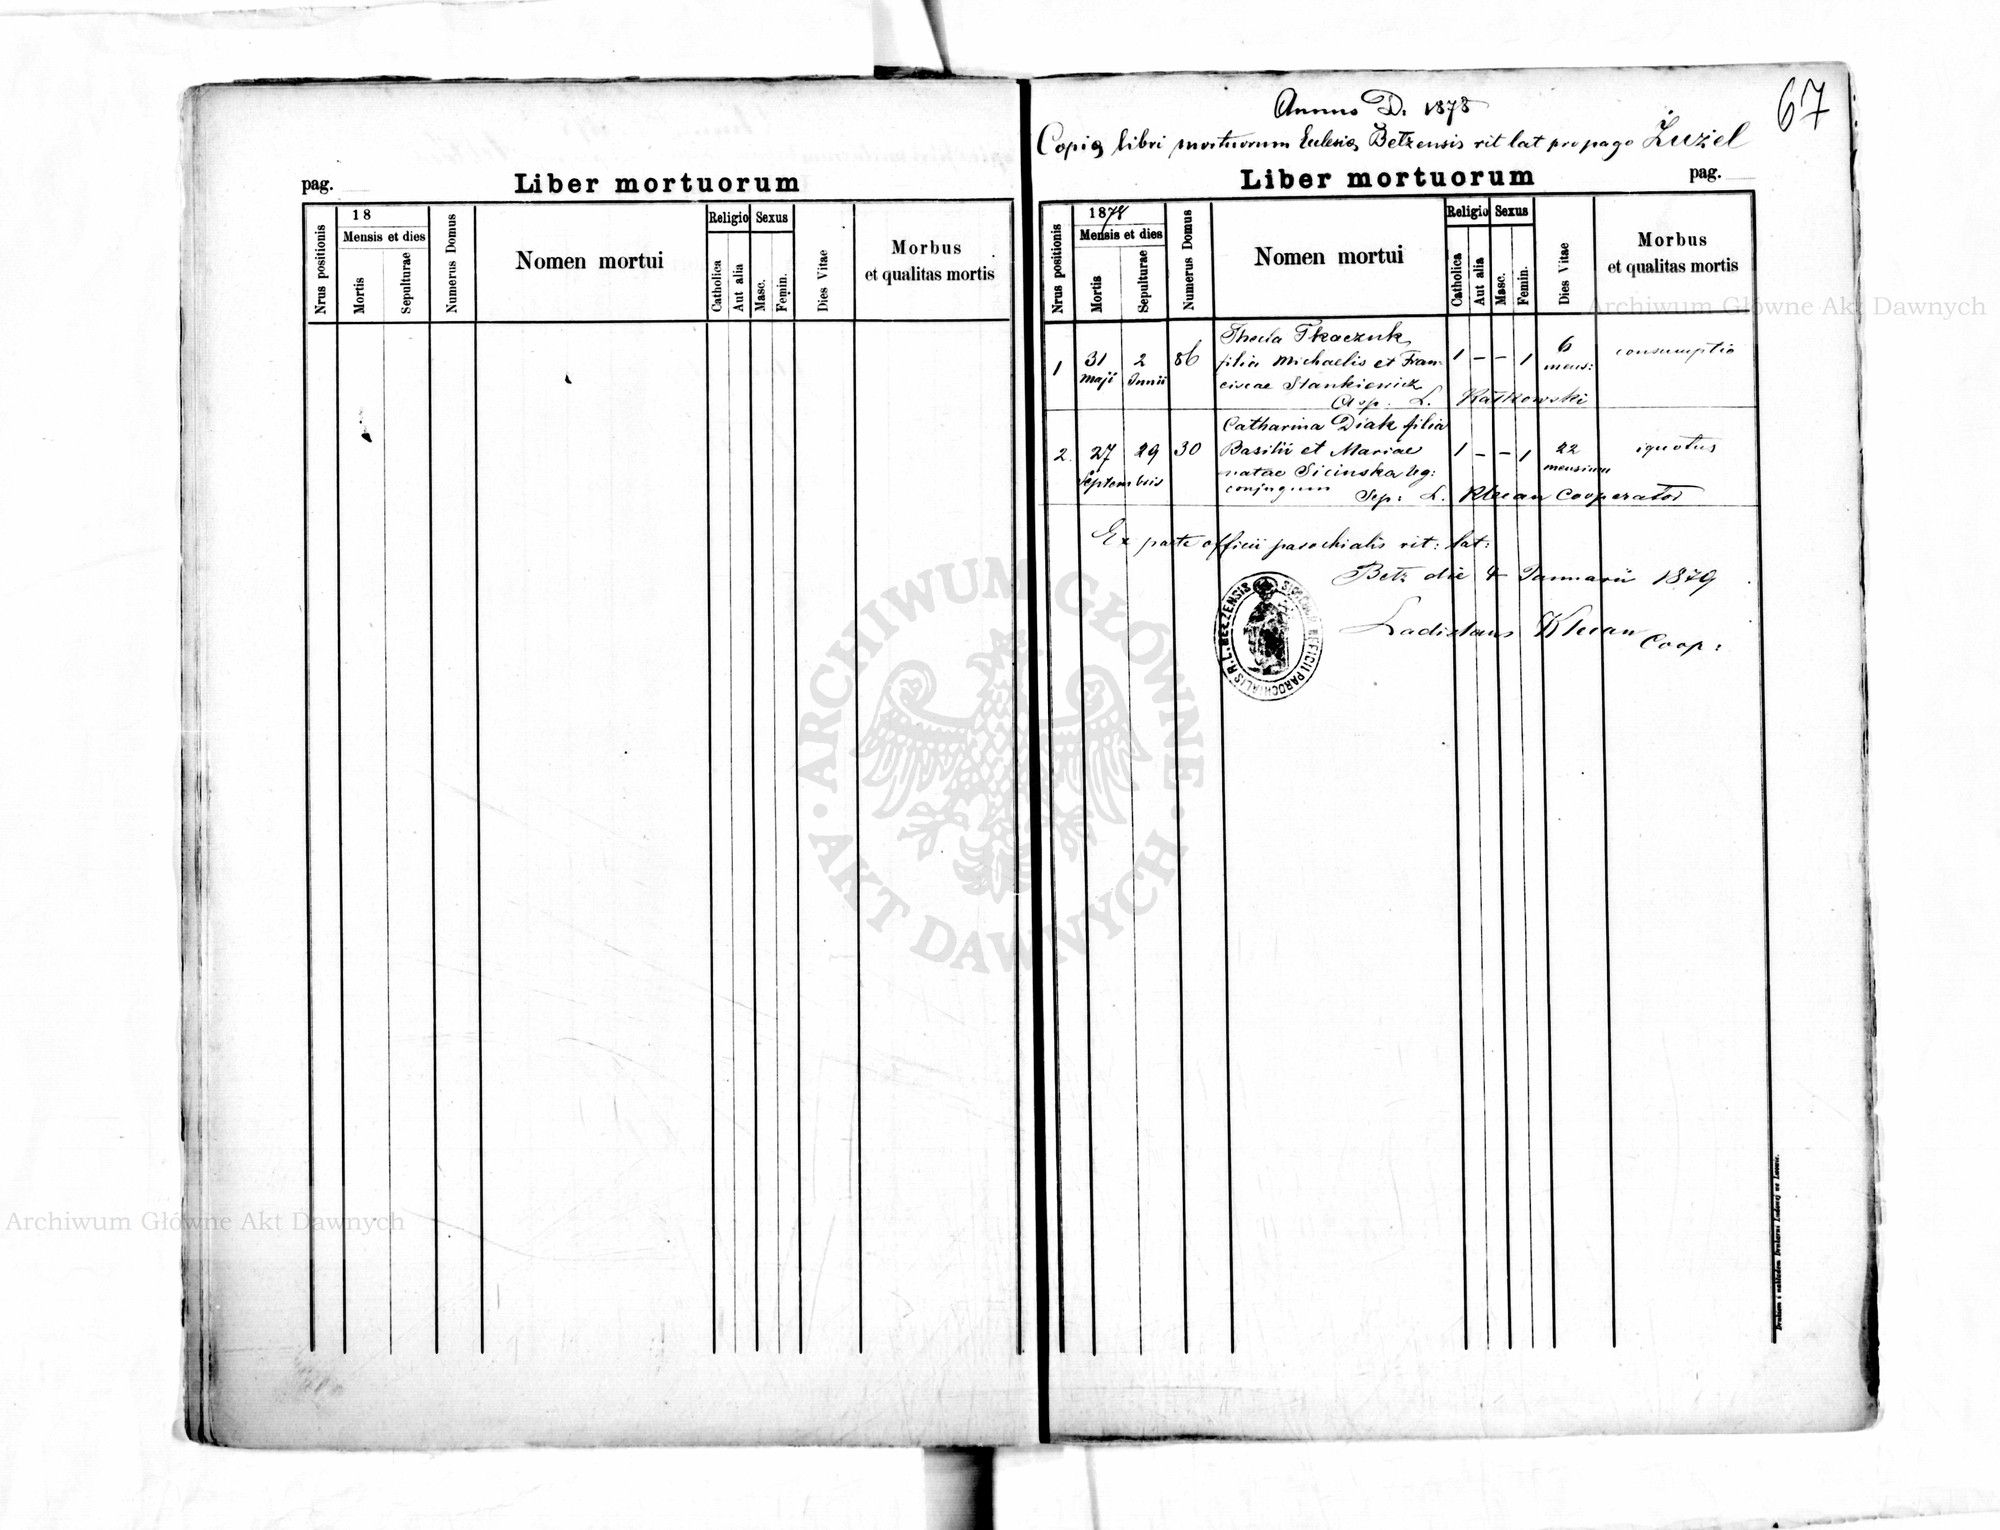 pag.
Liber mortuorum
Nrus positionis
18
Mensis et dies
Mortis
Sepulturae
Numerus Domus
Nomen mortui
Religio
Catholica
Aut alia
Sexus
Masc.
Femin.
Dies Vitae
Morbus
et qualitas mortis
67
Annus D. 1878
Copia libri mortuorum Eclesia Betzensis rit lat pro pago Żużel
Liber mortuorum
pag.
Nrus positionis
1878
Mensis et dies
Mortis
Sepulturae
Numerus Domus
Nomen mortui
Religio
Catholica
Aut alia
Sexus
Masc.
Femin.
Dies Vitae
Morbus
et qualitas mortis
Thecla Tkaczuk
1 31 2 86 filia Michaelis et Fran- 1 – – 1 6 consumptio
maji Junii ciscae Stankiewicz mens:
Cop. L. Ratkowski
Catharina Diak filia
2. 27 29 30 Basilii et Mariae 1 – – 1 22 ignotus
Septembris natae Sicinska leg: mensium
conjugum Sep: L. Klecan Cooperator
Ex parte officii parochialis rit: lat:
Betz die 4 Januarii 1879
Ladislaus Klecan Coop:
SIGILLUM OFFICII PAROCHIALIS R.L. BEŁZENSIS
Drukiem i nakładem Drukarni Ludowej we Lwowie.
ARCHIWUM GŁÓWNE AKT DAWNYCH
Archiwum Główne Akt Dawnych
Archiwum Główne Akt Dawnych